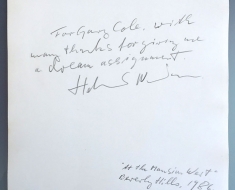 For Gary Cole, with
many thanks for giving me
a dream assignment.
"At the Mansion West"
Beverly Hills, 1986